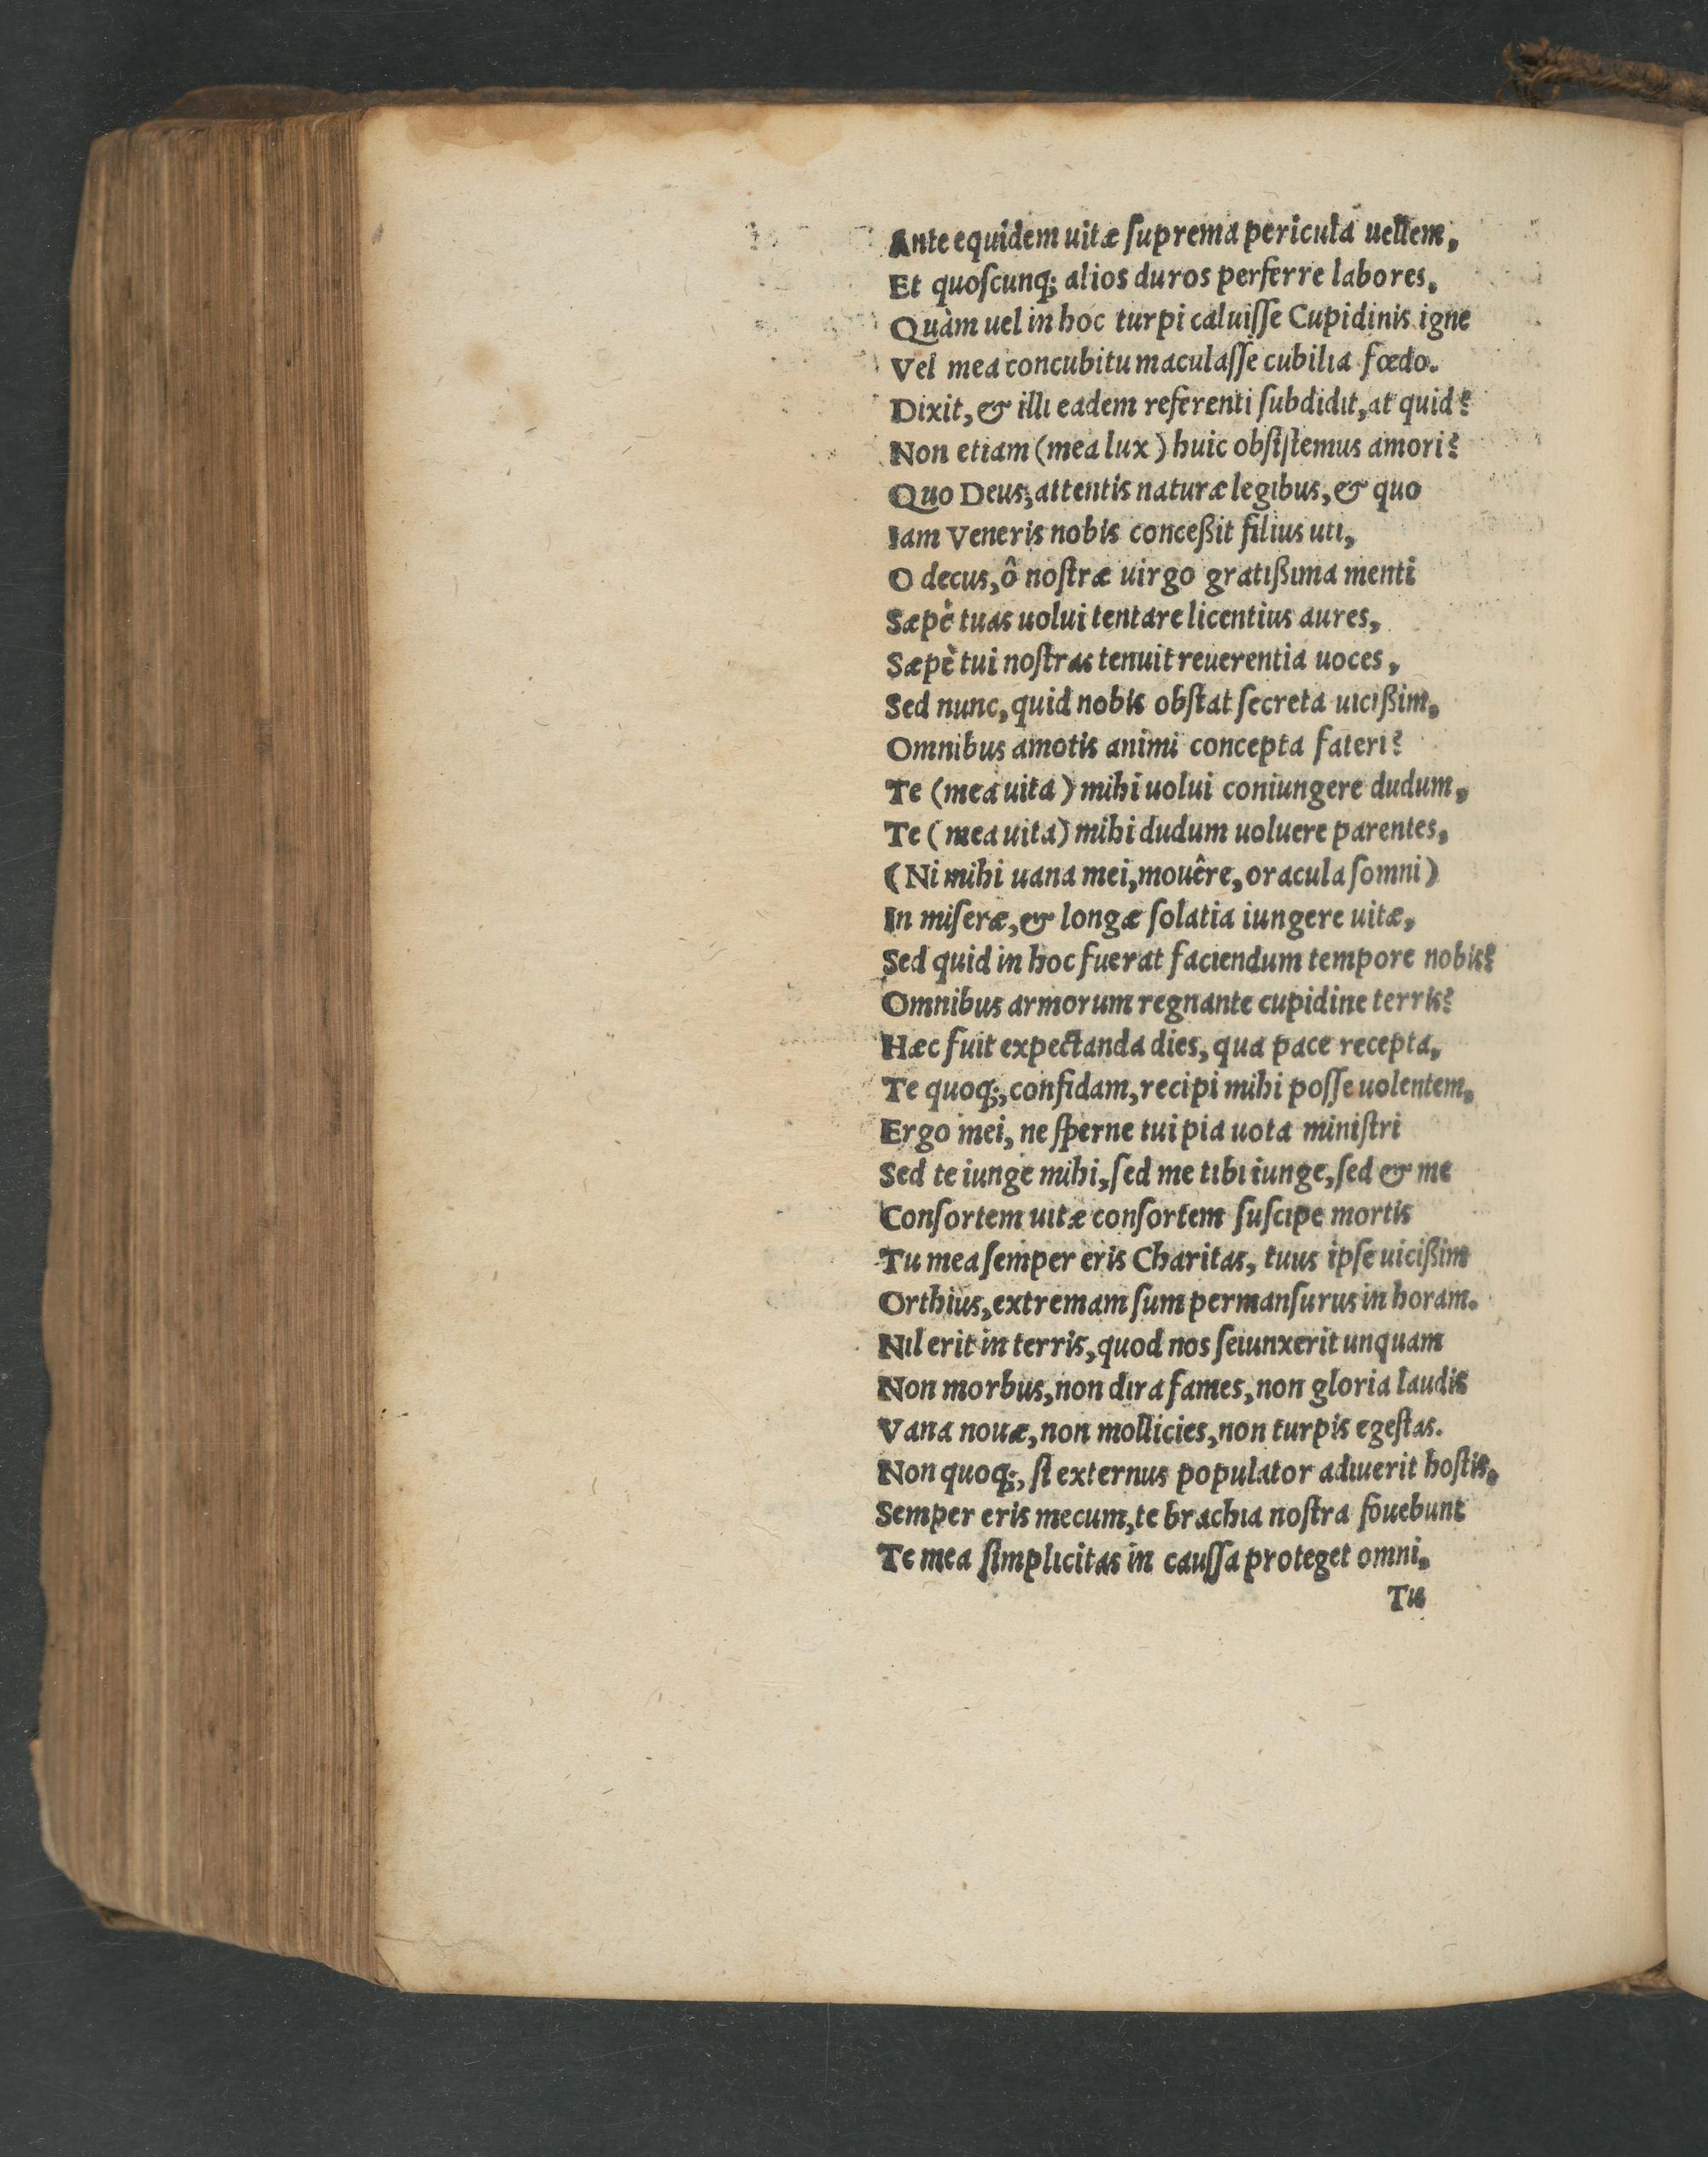 Ante equidem uitæ ſuprema pericula uellem,
Et quoſcunq; alios duros perferre labores,
Quàm uel in hoc turpi caluiſſe Cupidinis igne
Vel mea concubitu maculaſſe cubilia fœdo.
Dixit, & illi eadem referenti ſubdidit, at quid?
Non etiam (mea lux) huic obſiſtemus amori?
Quo Deus, attentis naturæ legibus, & quo
Iam Veneris nobis conceßit filius uti,
O decus, ô noſtræ uirgo gratißima menti
Sæpè tuas uolui tentare licentius aures,
Sæpè tui noſtras tenuit reuerentia uoces,
Sed nunc, quid nobis obſtat ſecreta uicißim,
Omnibus amotis animi concepta fateri?
Te (mea uita) mihi uolui coniungere dudum,
Te (mea uita) mihi dudum uoluere parentes,
(Ni mihi uana mei, mouêre, oracula ſomni)
In miſeræ, & longæ ſolatia iungere uitæ,
Sed quid in hoc fuerat faciendum tempore nobis?
Omnibus armorum regnante cupidine terris?
Hæc fuit expectanda dies, qua pace recepta,
Te quoq;, confidam, recipi mihi poſſe uolentem,
Ergo mei, ne ſperne tui pia uota miniſtri
Sed te iunge mihi, ſed me tibi iunge, ſed & me
Conſortem uitæ conſortem ſuſcipe mortis
Tu mea ſemper eris Charitas, tuus ipſe uicißim
Orthius, extremam ſum permanſurus in horam.
Nil erit in terris, quod nos ſeiunxerit unquam
Non morbus, non dira fames, non gloria laudis
Vana nouæ, non mollicies, non turpis egeſtas.
Non quoq;, ſi externus populator adiuerit hoſtis,
Semper eris mecum, te brachia noſtra fouebunt
Te mea ſimplicitas in cauſſa proteget omni,
Tu